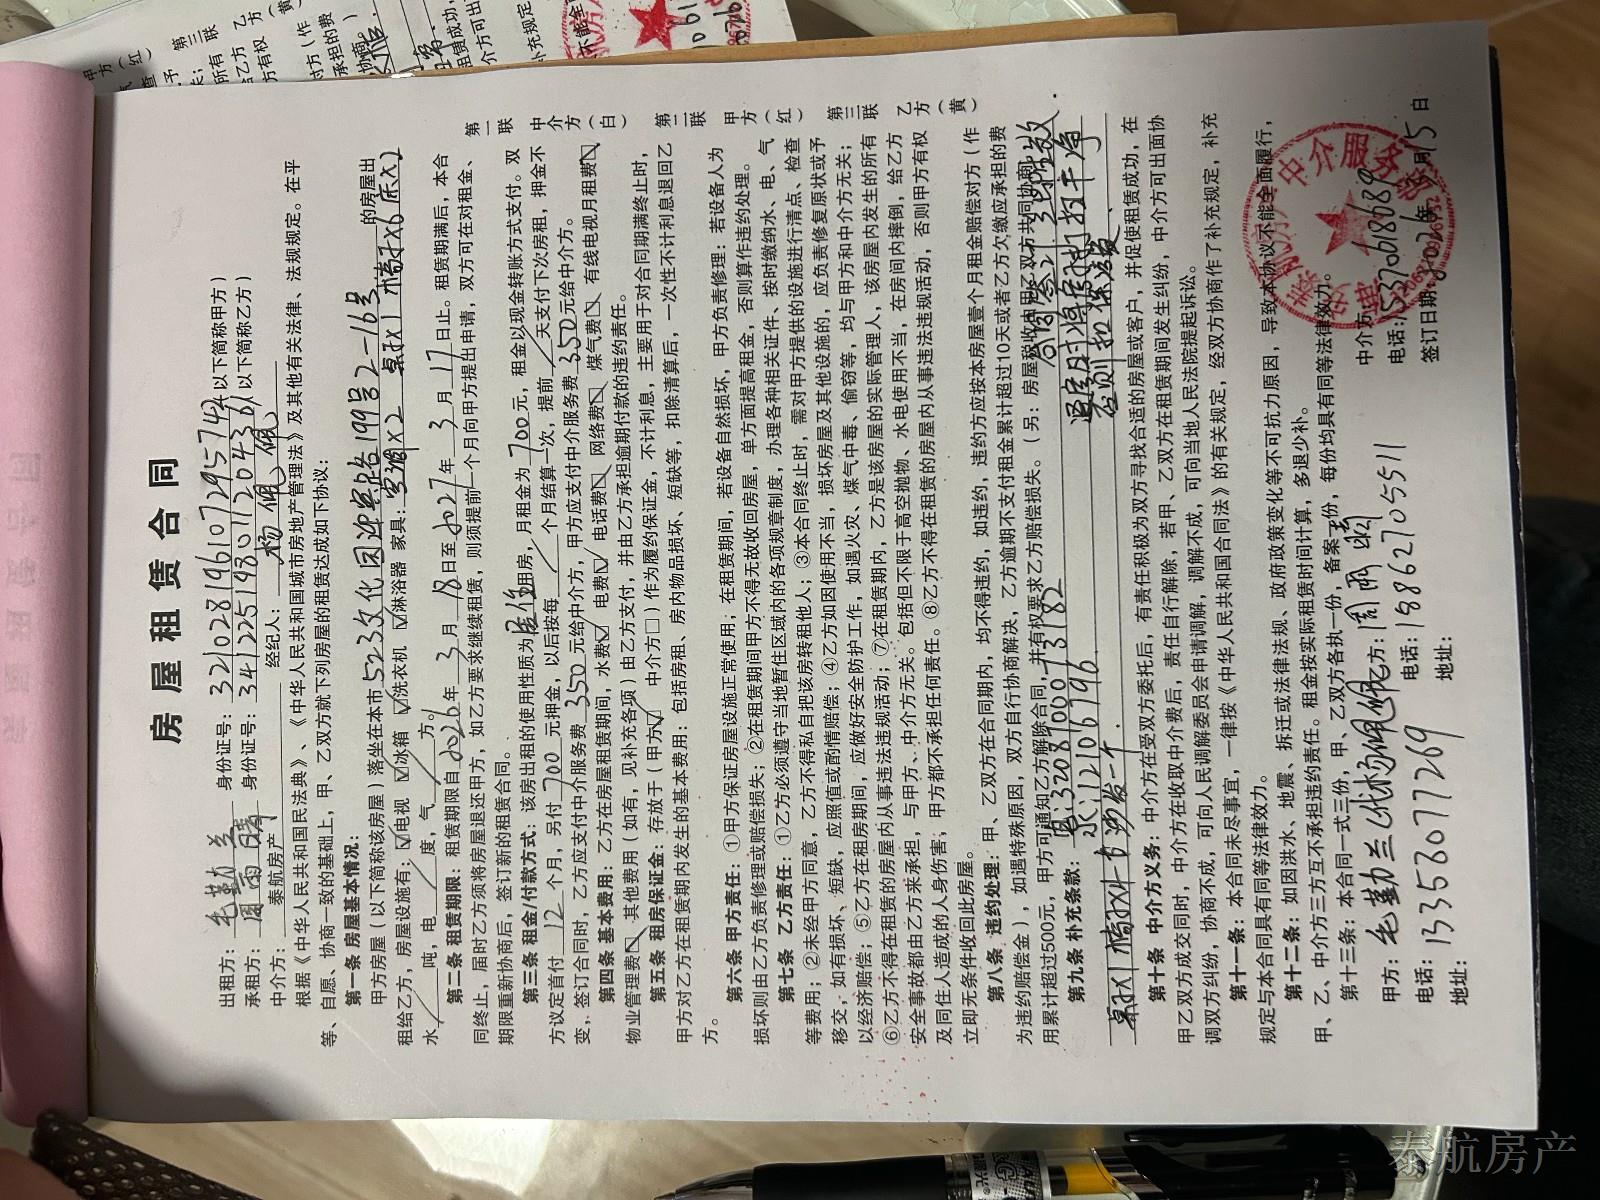 房屋租赁合同
出租方：毛勤兰 身份证号：321028196107295742（以下简称甲方）
承租方：周雨晴 身份证号：341225198011204301（以下简称乙方）
中介方：泰航房产 经纪人：杨佩佩
根据《中华人民共和国民法典》、《中华人民共和国城市房地产管理法》及其他有关法律、法规规定。在平
等、自愿、协商一致的基础上，甲、乙双方就下列房屋的租赁达成如下协议：
第一条 房屋基本情况：
甲方房屋（以下简称该房屋）落坐在本市523文化园迎宾路199号2-16号的房屋出
租给乙方，房屋设施有：☑电视 ☑冰箱 ☑洗衣机 ☑淋浴器 家具：空调×2 桌子×1 椅子×6 床×2
水 吨，电 度，气 方。
第二条 租赁期限：租赁期限自2026年3月18日至2027年3月17日止。租赁期满后，本合
同终止，届时乙方须将房屋退还甲方，如乙方要求继续租赁，则须提前一个月向甲方提出申请，双方可在对租金、
期限重新协商后，签订新的租赁合同。
第三条 租金/付款方式：该房出租的使用性质为居住用房，月租金为700元，租金以现金转账方式支付。双
方议定首付12个月，另付700元押金，以后按每 个月结算一次，提前 天支付下次房租，押金不
变，签订合同时，乙方应支付中介服务费350元给中介方，甲方应支付中介服务费350元给中介方。
第四条 基本费用：乙方在房屋租赁期间，水费☑ 电费☑ 电话费 网络费 煤气费 有线电视月租费
物业管理费 其他费用（如有，见补充各项）由乙方支付，并由乙方承担逾期付款的违约责任。
第五条 租房保证金：存放于（甲方☑ 中介方□）作为履约保证金，不计利息，主要用于对合同期满终止时，
甲方对乙方在租赁期内发生的基本费用：包括房租、房内物品损坏、短缺等，扣除清算后，一次性不计利息退回乙
方。
第六条 甲方责任：①甲方保证房屋设施正常使用；在租赁期间，若设备自然损坏，甲方负责修理；若设备人为
损坏则由乙方负责修理或赔偿损失；②在租赁期间甲方不得无故收回房屋，单方面提高租金，否则算作违约处理。
第七条 乙方责任：①乙方必须遵守当地暂住区域内的各项规章制度，办理各种相关证件、按时缴纳水、电、气
等费用；②未经甲方同意，乙方不得私自把该房转租他人；③本合同终止时，需对甲方提供的设施进行清点、检查
移交，如有损坏、短缺，应照值或酌情赔偿；④乙方如因使用不当，损坏房屋及其他设施的，应负责修复原状或予
以经济赔偿；⑤乙方在租房期间，应做好安全防护工作，如遇火灾、煤气中毒、偷窃等，均与甲方和中介方无关；
⑥乙方不得在租赁的房屋内从事违法违规活动；⑦在租赁期内，乙方是该房屋的实际管理人，该房屋内发生的所有
安全事故都由乙方来承担，与甲方、中介方无关。包括但不限于高空抛物、水电使用不当，在房间内摔倒，给乙方
及同住人造成的人身伤害；甲方都不承担任何责任。⑧乙方不得在租赁的房屋内从事违法违规活动，否则甲方有权
立即无条件收回此房屋。
第八条 违约处理：甲、乙双方在合同期内，均不得违约，如违约，违约方应按本房屋壹个月租金赔偿对方（作
为违约赔偿金），如遇特殊原因，双方自行协商解决，乙方逾期不支付租金累计超过10天或者乙方欠缴应承担的费
用累计超过500元，甲方可通知乙方解除合同，并有权要求乙方赔偿损失。（另：房屋税收由甲乙双方共同协商）
第九条 补充条款：
水：121016796.
桌子×1 椅子×1 沙发一个.
退房时将房子打扫干净
否则扣保洁费.
第十条 中介方义务：中介方在受双方委托后，有责任积极为双方寻找合适的房屋或客户，并促使租赁成功，在
甲乙双方成交同时，中介方在收取中介费后，责任自行解除，若甲、乙双方在租赁期间发生纠纷，中介方可出面协
调双方纠纷，协商不成，可向人民调解委员会申请调解，调解不成，可向当地人民法院提起诉讼。
第十一条：本合同未尽事宜，一律按《中华人民共和国合同法》的有关规定，经双方协商作了补充规定，补充
规定与本合同具有同等法律效力。
第十二条：如因洪水、地震、拆迁或法律法规、政府政策变化等不可抗力原因，导致本协议不能全面履行，
甲、乙、中介方三方互不承担违约责任。租金按实际租赁时间计算，多退少补。
第十三条：本合同一式三份，甲、乙双方各执一份，备案壹份，每份均具有同等法律效力。
甲方：毛勤兰（代）杨佩佩 乙方：周雨晴 中介方：
电话：13353077269 电话：18862705511 电话：15370618088
地址： 地址： 签订日期：2026年3月15日
第一联 中介方（白） 第二联 甲方（红） 第三联 乙方（黄）
泰航房产